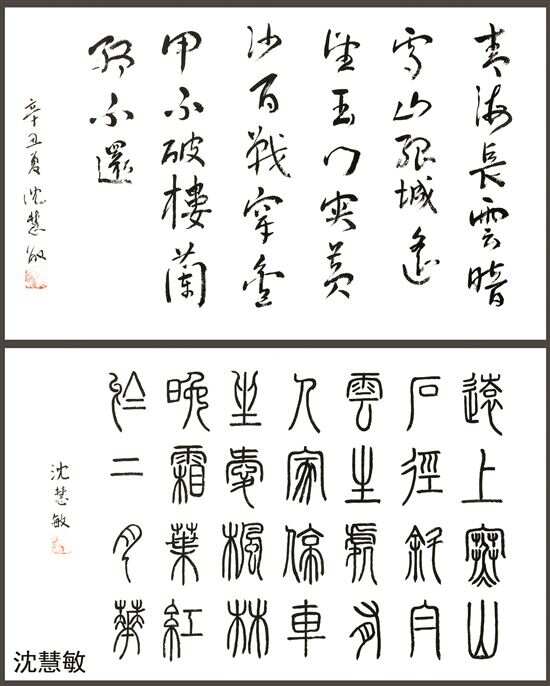 青海長雲暗
雪山孤城遙
望玉门關黄
沙百戰穿金
甲不破樓蘭
終不還
辛丑夏沈慧敏
遠上寒山
石徑斜白
雲生處有
人家停車
坐愛楓林
晚霜葉紅
於二月華
沈慧敏
沈慧敏